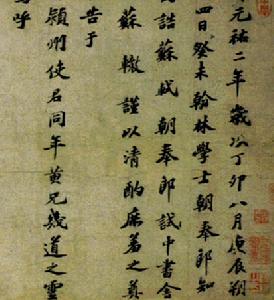 元祐二年歲次丁卯八月庚辰朔
四日癸未翰林學士朝奉郎知
誥蘇軾朝奉郎試中書舍
蘇轍謹以清酌庶羞之奠
告于
潁州使君同年黃兄幾道之靈
嗚呼